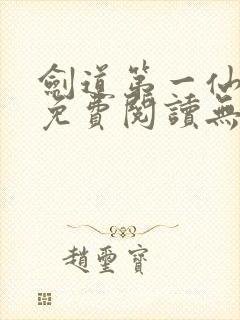 劍道第一仙
免費閱讀無
趙璽寶